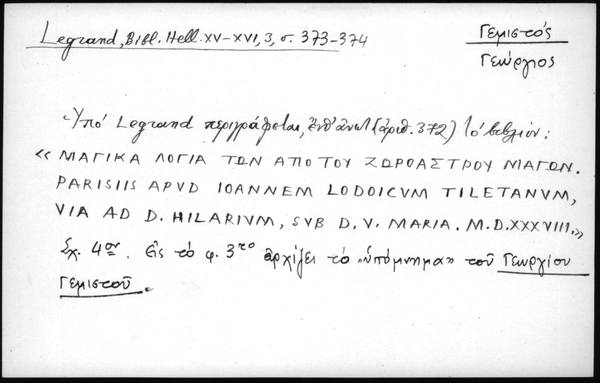 Legrand, Bibl. Hell. XV-XVI, 3, σ. 373-374
Γεμιστός
Γεώργιος
Ὑπό Legrand περιγράφεται, ἔνθ' ἀνωτ. (ἀριθ. 372) τό βιβλίον:
« ΜΑΓΙΚΑ ΛΟΓΙΑ ΤΩΝ ΑΠΟ ΤΟΥ ΖΩΡΟΑΣΤΡΟΥ ΜΑΓΩΝ.
PARISIIS APVD IOANNEM LODOICVM TILETANVM,
VIA AD D. HILARIVM, SVB D. V. MARIA. M.D.XXXVIII.»
Σχ. 4ον. Εἰς τό φ. 3το ἀρχίζει τό «ὑπόμνημα» τοῦ Γεωργίου
Γεμιστοῦ.